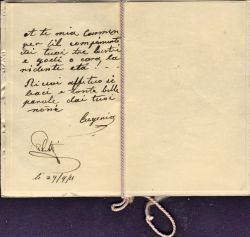 et te mia Carmen
per til compimento
dei tuoi tre lustri
e godi o cara la
ridente età! - -
Ricevi affettuosi
baci e tante belle
parole dai tuoi
nonni
Eugenio
li 27/9/11